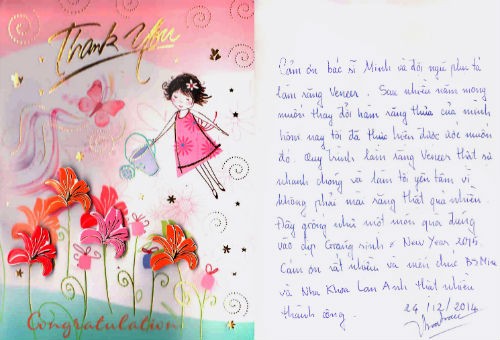 Thank You
Congratulation
Cám ơn bác sĩ Minh và đội ngũ phụ tá
làm răng Veneer. Sau nhiều năm mong
muốn thay đổi hàm răng thưa của mình
hôm nay tôi đã thực hiện được ước muốn
đó. Quy trình làm răng Veneer thật sự
nhanh chóng và làm tôi yên tâm vì
không phải mài răng thật quá nhiều.
Đây giống như một món quà đúng
vào dịp Giáng sinh & New Year 2015.
Cám ơn rất nhiều và mến chúc BS Minh
và Nha Khoa Lan Anh thật nhiều
thành công.
24/12/2014